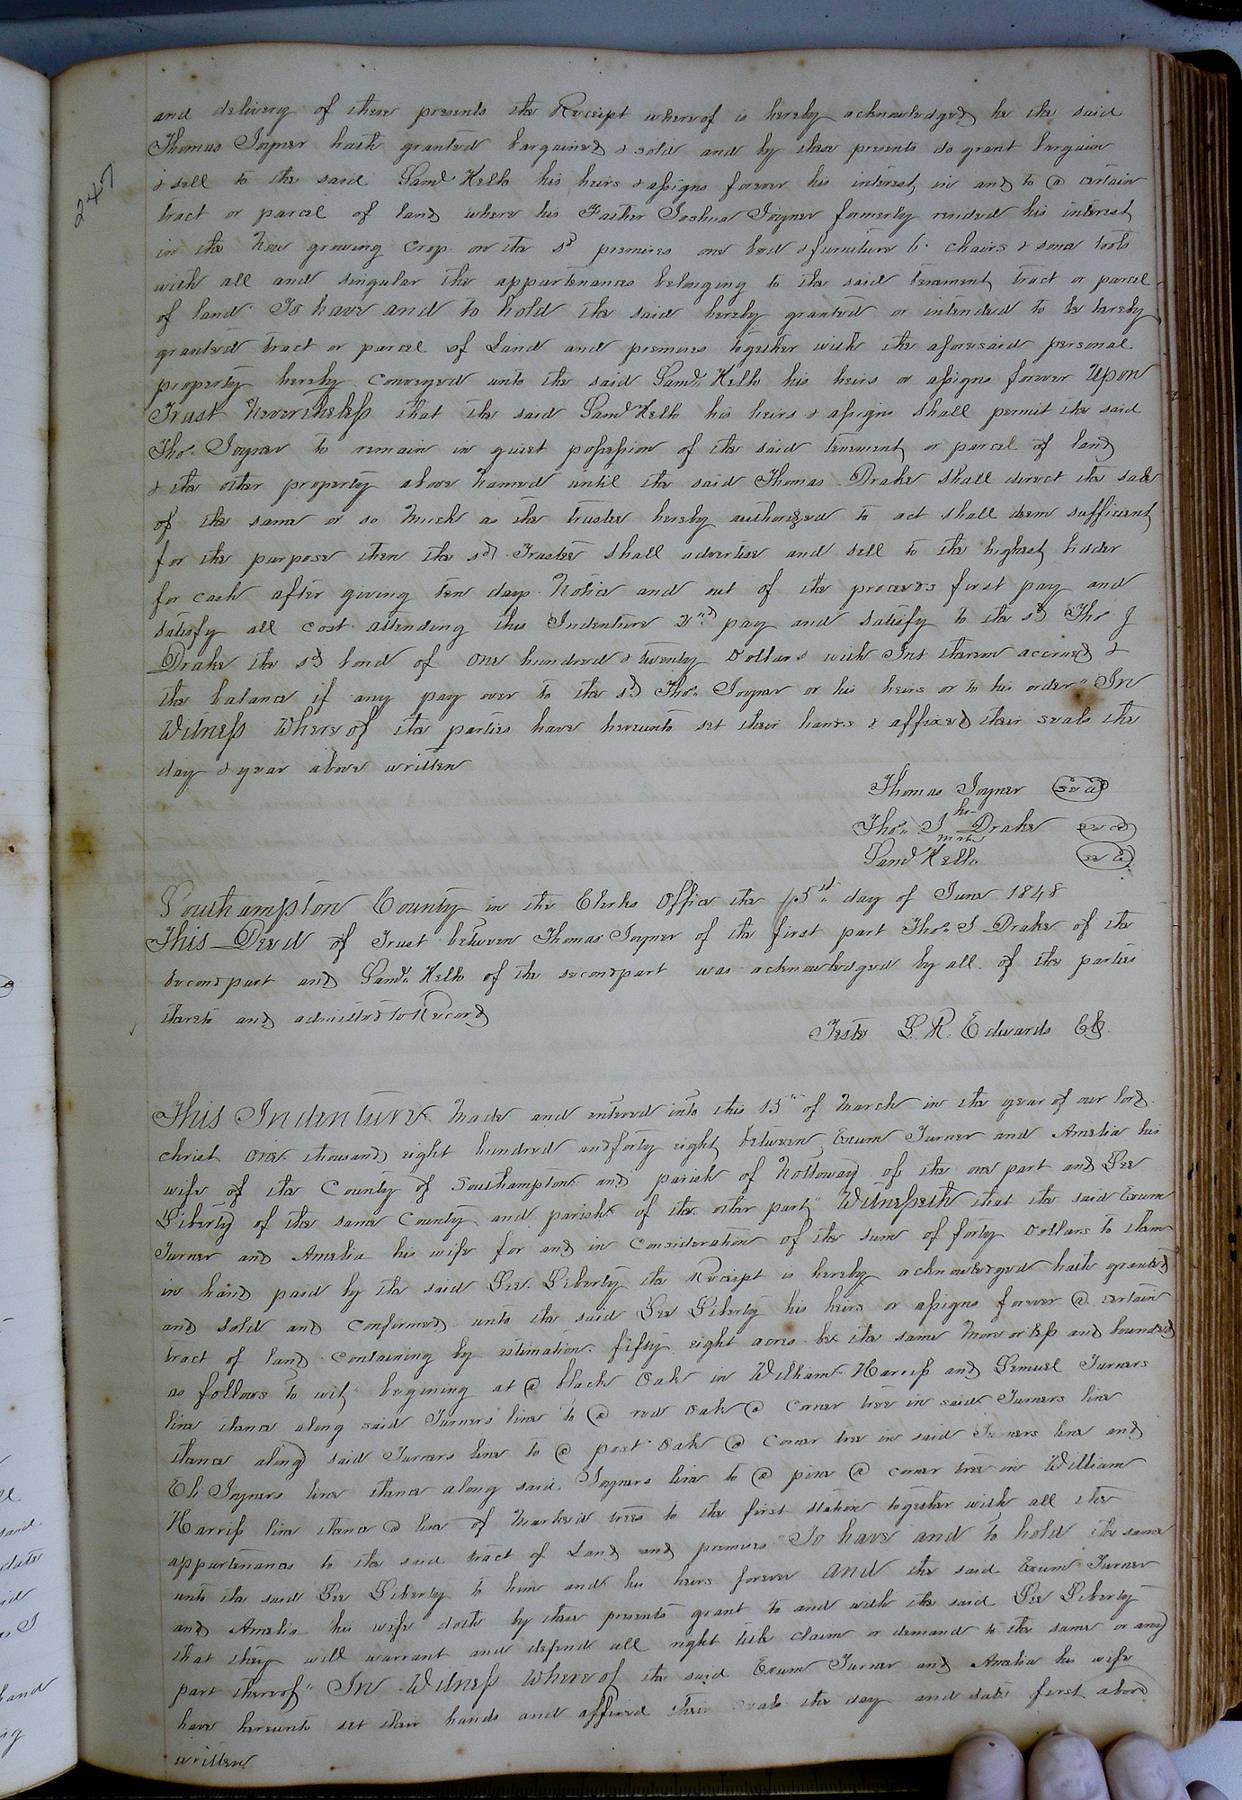 247
and delivery of these presents the Receipt whereof is hereby acknowledged he the said
Thomas Joyner hath granted bargained & sold and by these presents do grant bargain
& sell to the said Saml Kello his heirs & assigns forever his interest in and to a certain
tract or parcel of land where his Father Joshua Joyner formerly resided his interest
in the now growing crop on the sd premises one bed & furniture 6 chairs & some tools
with all and singular the appurtenances belonging to the said tenament tract or parcel
of land To have and to hold the said hereby granted or intended to be hereby
granted tract or parcel of Land and premises together with the aforesaid personal
property hereby conveyed unto the said Saml Kello his heirs or assigns forever Upon
Trust Nevertheless that the said Saml Kello his heirs & assigns shall permit the said
Thos Joyner to remain in quiet possession of the said tenement or parcel of land
& the other property above named until the said Thomas Drake shall direct the sale
of the same or so much as the trustee hereby authorized to act shall deem sufficient
for the purpose then the sd Trustee shall advertise and sell to the highest bidder
for cash after giving ten days Notice and out of the proceeds first pay and
satisfy all cost attending this Indenture 2nd pay and satisfy to the sd Tho J
Drake the sd bond of one hundred & twenty Dollars with Int thereon accrued &
the balance if any pay over to the sd Thos Joyner or his heirs or to his order" In
Witness Whereof the parties have hereunto set their hands & affixed their seals the
day & year above written
Thomas Joyner seal
his
Thos J Drake seal
mark
Saml Kello seal
Southampton County in the Clerks Office the 15th day of June 1848
This Deed of Trust between Thomas Joyner of the first part Thos J Drake of the
second part and Saml Kello of the second part was acknowledged by all of the parties
thereto and admitted to Record
Teste L. R. Edwards CC
This Indenture Made and entered into this 15th of March in the year of our lord
christ one thousand eight hundred and forty eight between Exum Turner and Amelia his
wife of the County of Southampton and parish of Nottoway of the one part and Lee
Liberty of the same County and parish of the other part" Witnesseth that the said Exum
Turner and Amelia his wife for and in Consideration of the sum of forty Dollars to them
in hand paid by the said Lee Liberty the Receipt is hereby acknowledged hath granted
and sold and confirmed unto the said Lee Liberty his heirs or assigns forever a certain
tract of land containing by estimation fifty eight acres be the same More or less and bounded
as follows to wit begining at a black Oak in William Harriss and Lemuel Turners
line thence along said Turners line to a red Oak a corner tree in said Turners line
thence along said Turners line to a post Oak a corner tree in said Turners line and
Eli Joyners line thence along said Joyners line to a pine a corner tree in William
Harriss line thence a line of marked trees to the first station together with all the
appurtenances to the said tract of Land and premises To have and to hold the same
unto the said Lee Liberty to him and his heirs forever And the said Exum Turner
and Amelia his wife doth by these presents grant to and with the said Lee Liberty
that they will warrant and defend all right title claim or demand to the same or any
part thereof" In Witness Whereof the said Exum Turner and Amelia his wife
have hereunto set their hands and affixed their seals the day and date first above
written